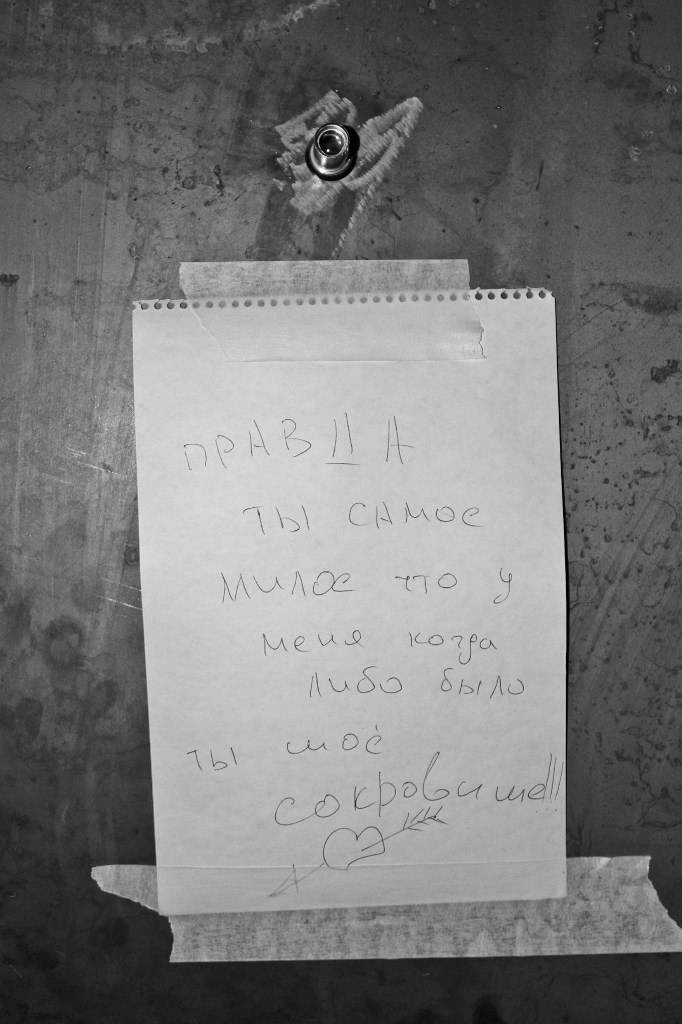 ПРАВДА
ТЫ САМОЕ
МИЛОЕ ЧТО У
меня когда
либо было
ТЫ моё
сокровище!!!